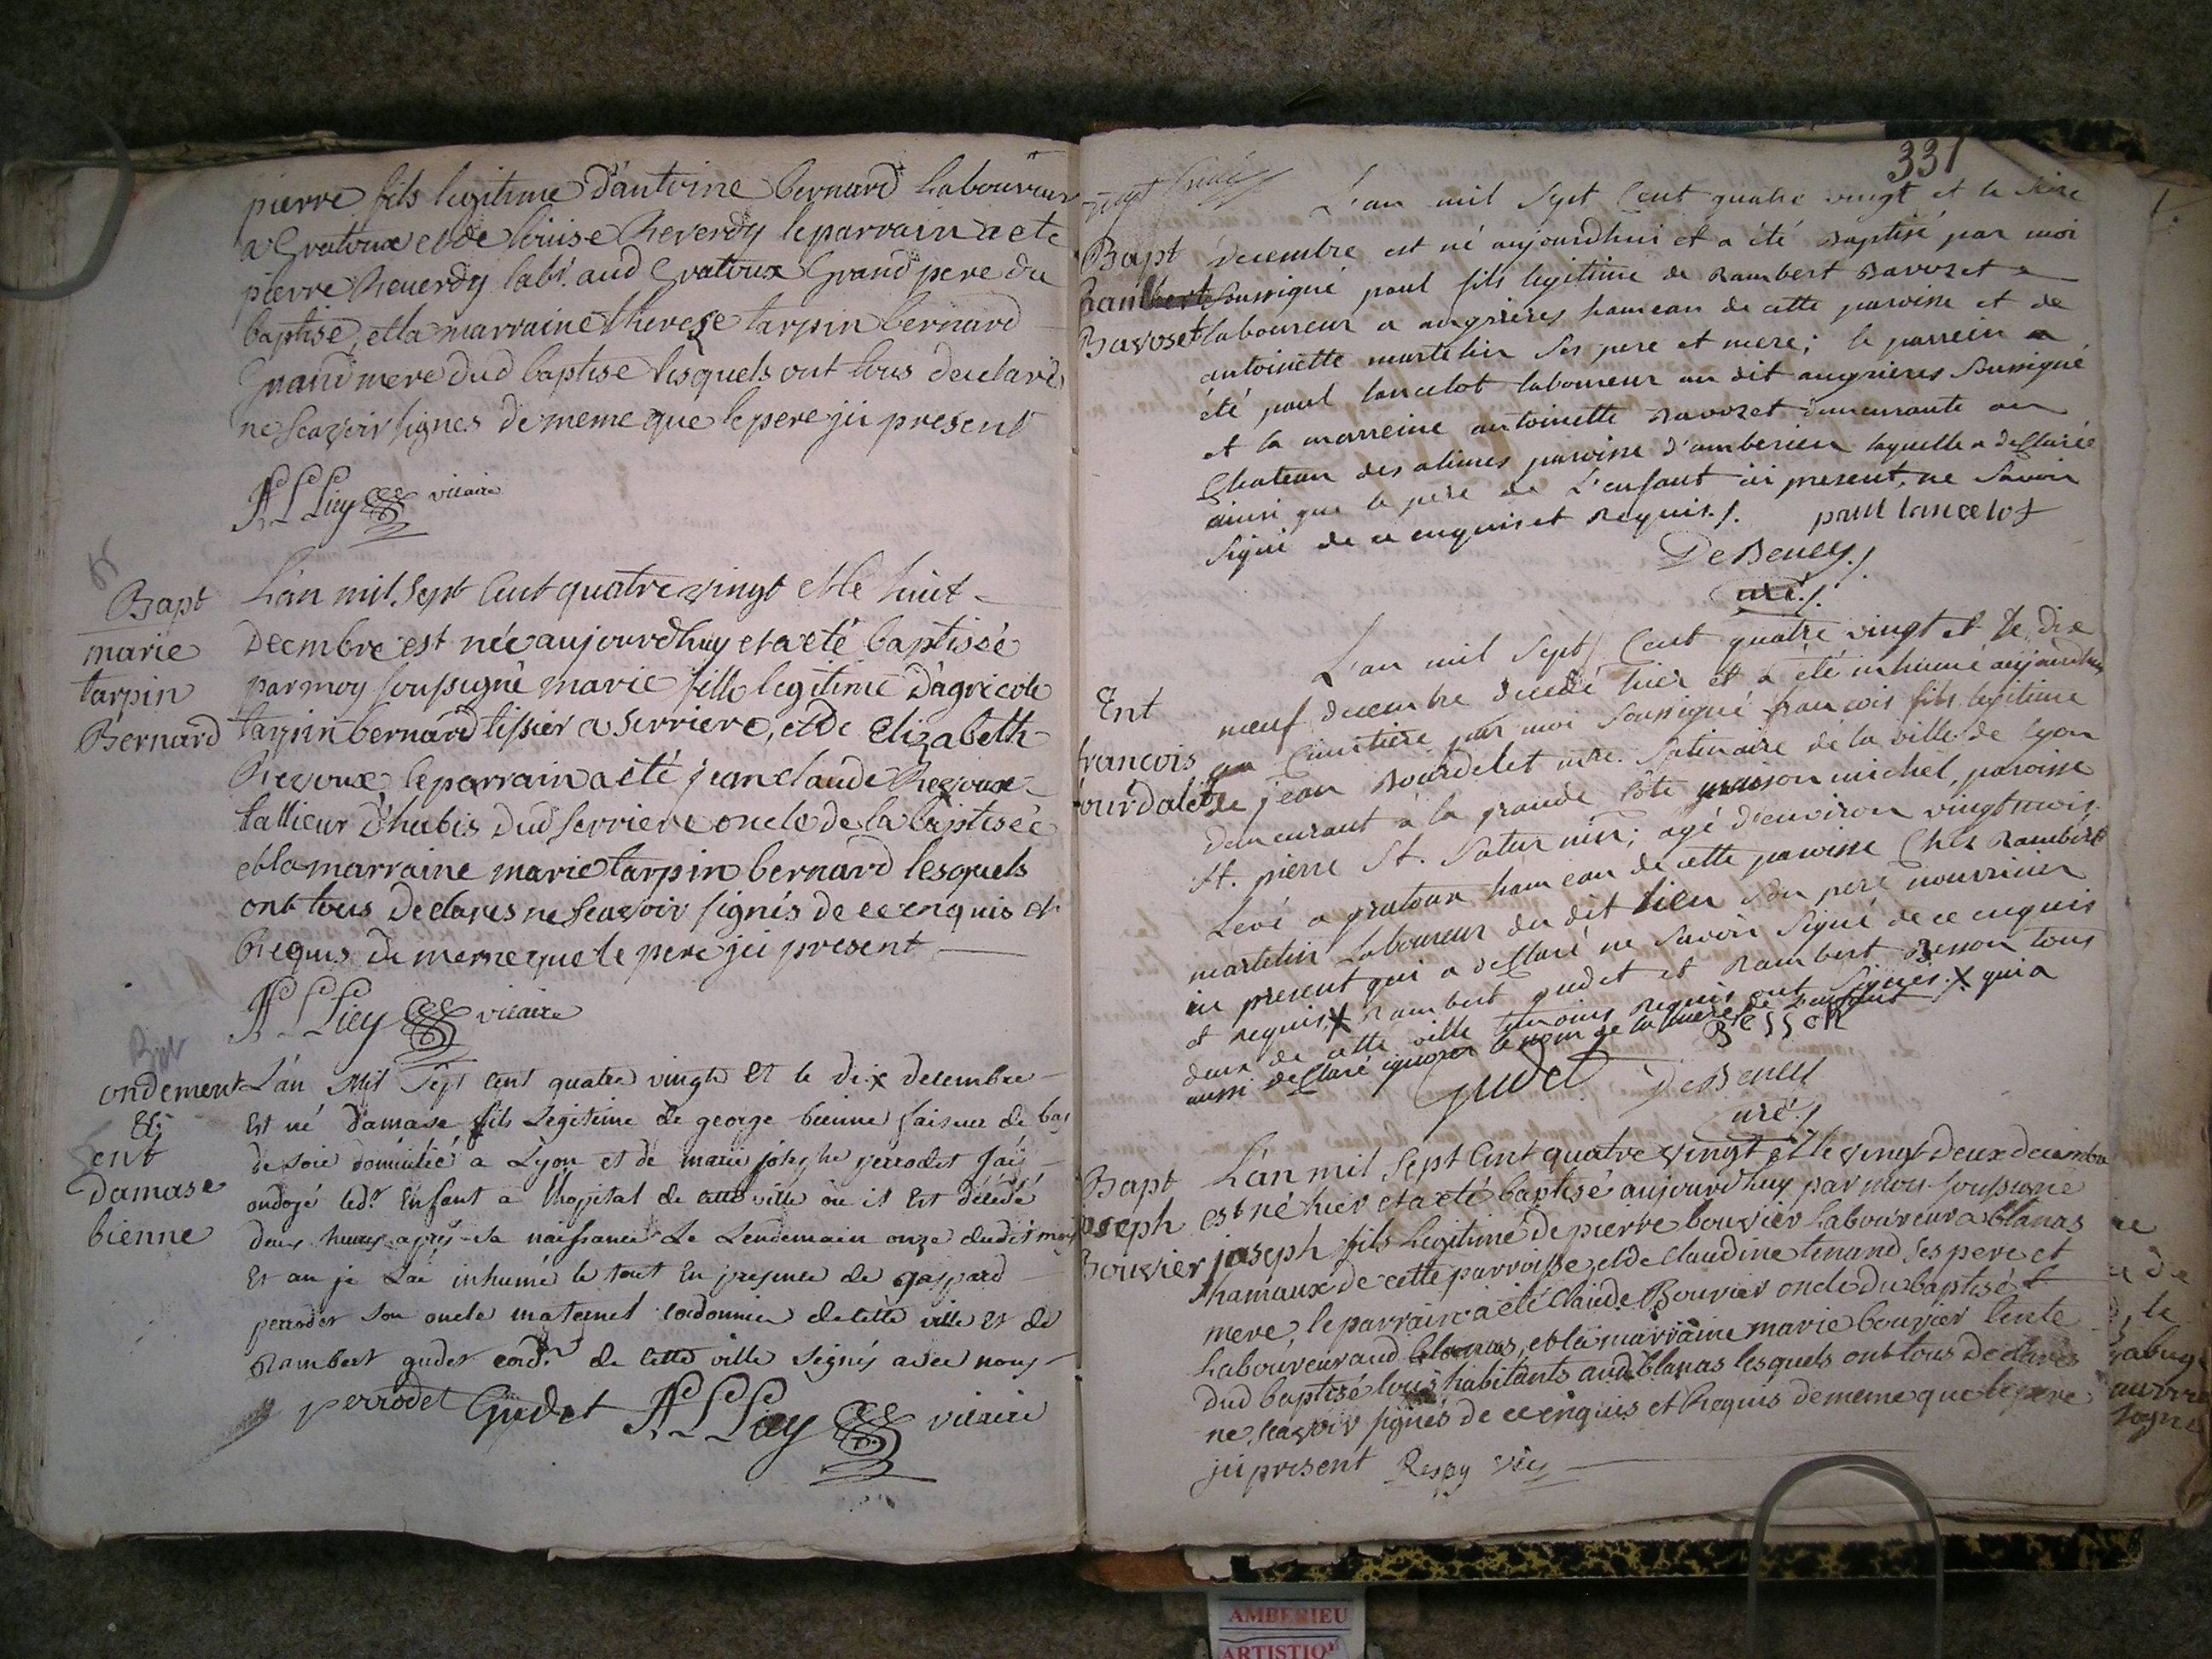 pierre fils legitime d'antoine bernard Laboureur
a Gratoux et de Louise Reverdy le parrain a eté
pierre Reverdy labr. aud Gratoux Grand pere du
baptisé, et la marraine therese tarpin bernard
Grand mere dud baptisé lesquels ont tous declarés
ne scavoir signés de meme que le pere jci present
vicaire
Bapt
marie
tarpin
Bernard
L'an mil sept Cent quatre vingt et le huit
Decembre est née aujourdhuy et a eté baptisée
par moy soussigné marie fille legitime d'agricole
tarpin bernard tissier a Serriere, et de Elizabeth
Revoux le parrain a eté jean claude Revoux
tallieur d'habis dud serriere oncle de la baptisée
et la marraine marie tarpin bernard lesquels
ont tous declarés ne scavoir signés de ce enquis et
Requis de meme que le pere jci present
vicaire
ondement
&
ent
damase
bienne
L'an Mil Sept cent quatre vingts Et le dix decembre
Est né damase fils Legitime de george bienne faiseur de bas
de soie domicilié a Lyon et de marie josephe perrodet jai
ondoyé led. Enfant a lhopital de cette ville ou il Est décédé
deux heures après sa naissance Le Lendemain onze dudit mois
Et an je Lai inhumé le tout En presence de gaspard
perrodet son oncle maternel cordonnier de cette ville Et de
Rambert gudet cord. de cette ville signés avec nous
perrodet Gudet vicaire
331
L'an mil Sept Cent quatre vingt et le Seize
Bapt
Bavoset
decembre est né aujourdhui et a été Baptisé par moi
Soussigné paul fils legitime de Rambert Bavozet
laboureur a angrieres hameau de cette paroisse et de
antoinette martelin Ses pere et mere; le parrein a
été paul lancelot laboureur au dit angrieres Soussigné
et la marreine antoinette Bavozet demeurante au
Chateau des alimes paroisse d'amberieu laquelle a declarée
ainsi que le pere de L'enfant ici present, ne Savoir
Signé de ce enquis et Requis./. paul lancelot
DeBeney./.
curé./.
Ent
francois
L'an mil Sept Cent quatre vingt et le dix
neuf decembre decedé hier et a été inhumé aujourdhui
au Cimetiere par moi Soussigné francois fils legitime
de jean Bourdelet mtre. Satinaire de la ville de Lyon
demeurant à la grande Côte maison michel, paroisse
St. pierre St. Saturnin; agé d'environ vingt mois
Levé a gratoux hameau de cette paroisse Chez Rambert
martelin Laboureur du dit lieu Son pere nourricier
ici present qui a declaré ne Savoir Signé de ce enquis
et requis X Rambert gudet et Rambert Besson tous
deux de cette ville temoins Requis ont Signés. X qui a
aussi declaré ignorer le nom de la mere de l'enfant
BeSSoN
gudet DeBeney
curé./.
Bapt
joseph
Bouvier
L'an mil Sept Cent quatre vingt et le vingt deux decembre
est né hier et a eté baptisé aujourd'huy par moy soussigné
joseph fils Legitime de pierre bouvier Laboureur a blanas
hamaux de cette parroisse, et de Claudine tenand ses pere et
mere, le parrain a eté Claude Bouvier oncle du baptisé
Laboureur aud blanas, et la marraine marie bouvier tente
dud baptisé tous habitants aud blanas lesquels ont tous declarés
ne scavoir signés de ce enquis et Requis de meme que le pere
jci present
AMBERIEU
ARTISTIQ